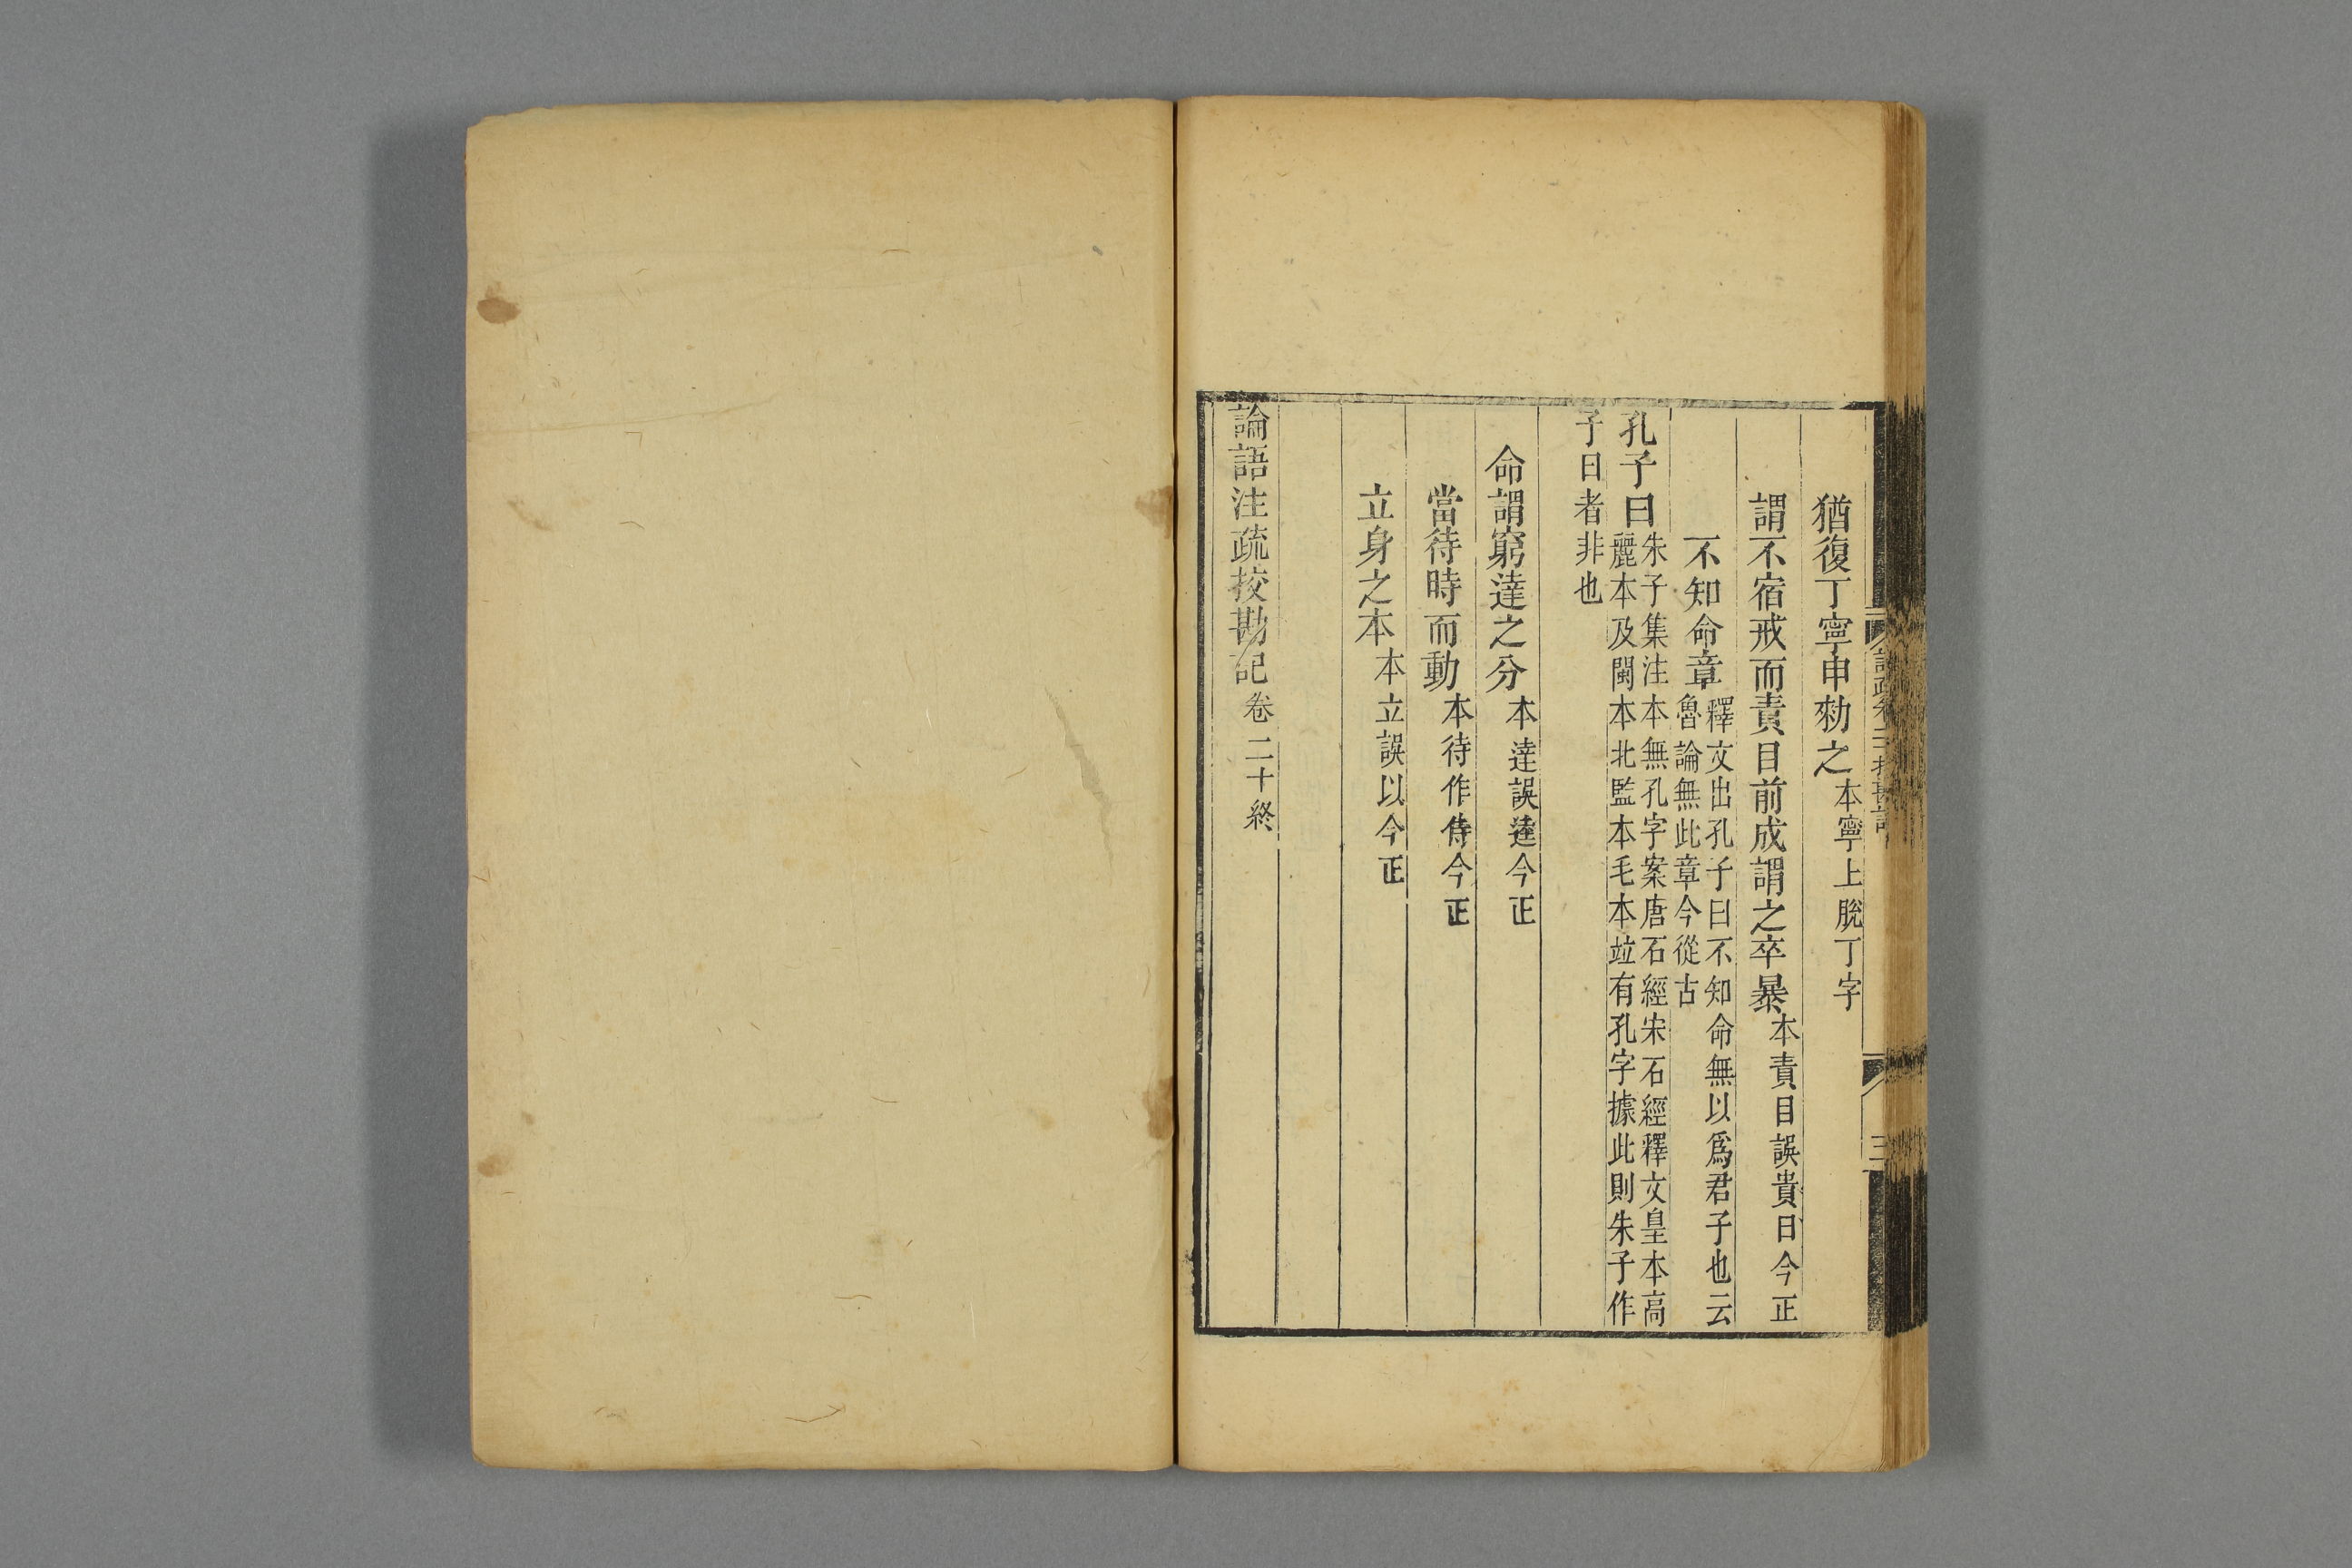 猶復丁寧申勑之本寧上脫丁字
謂不宿戒而責目前成謂之卒暴本責目誤貴日今正
不知命章釋文出孔子曰不知命無以爲君子也云
魯論無此章今從古
孔子曰朱子集注本無孔字案唐石經宋石經釋文皇本高
麗本及閩本北監本毛本竝有孔字據此則朱子作
子曰者非也
命謂窮達之分本達誤逹今正
當待時而動本待作侍今正
立身之本本立誤以今正
論語注疏挍勘記卷二十終